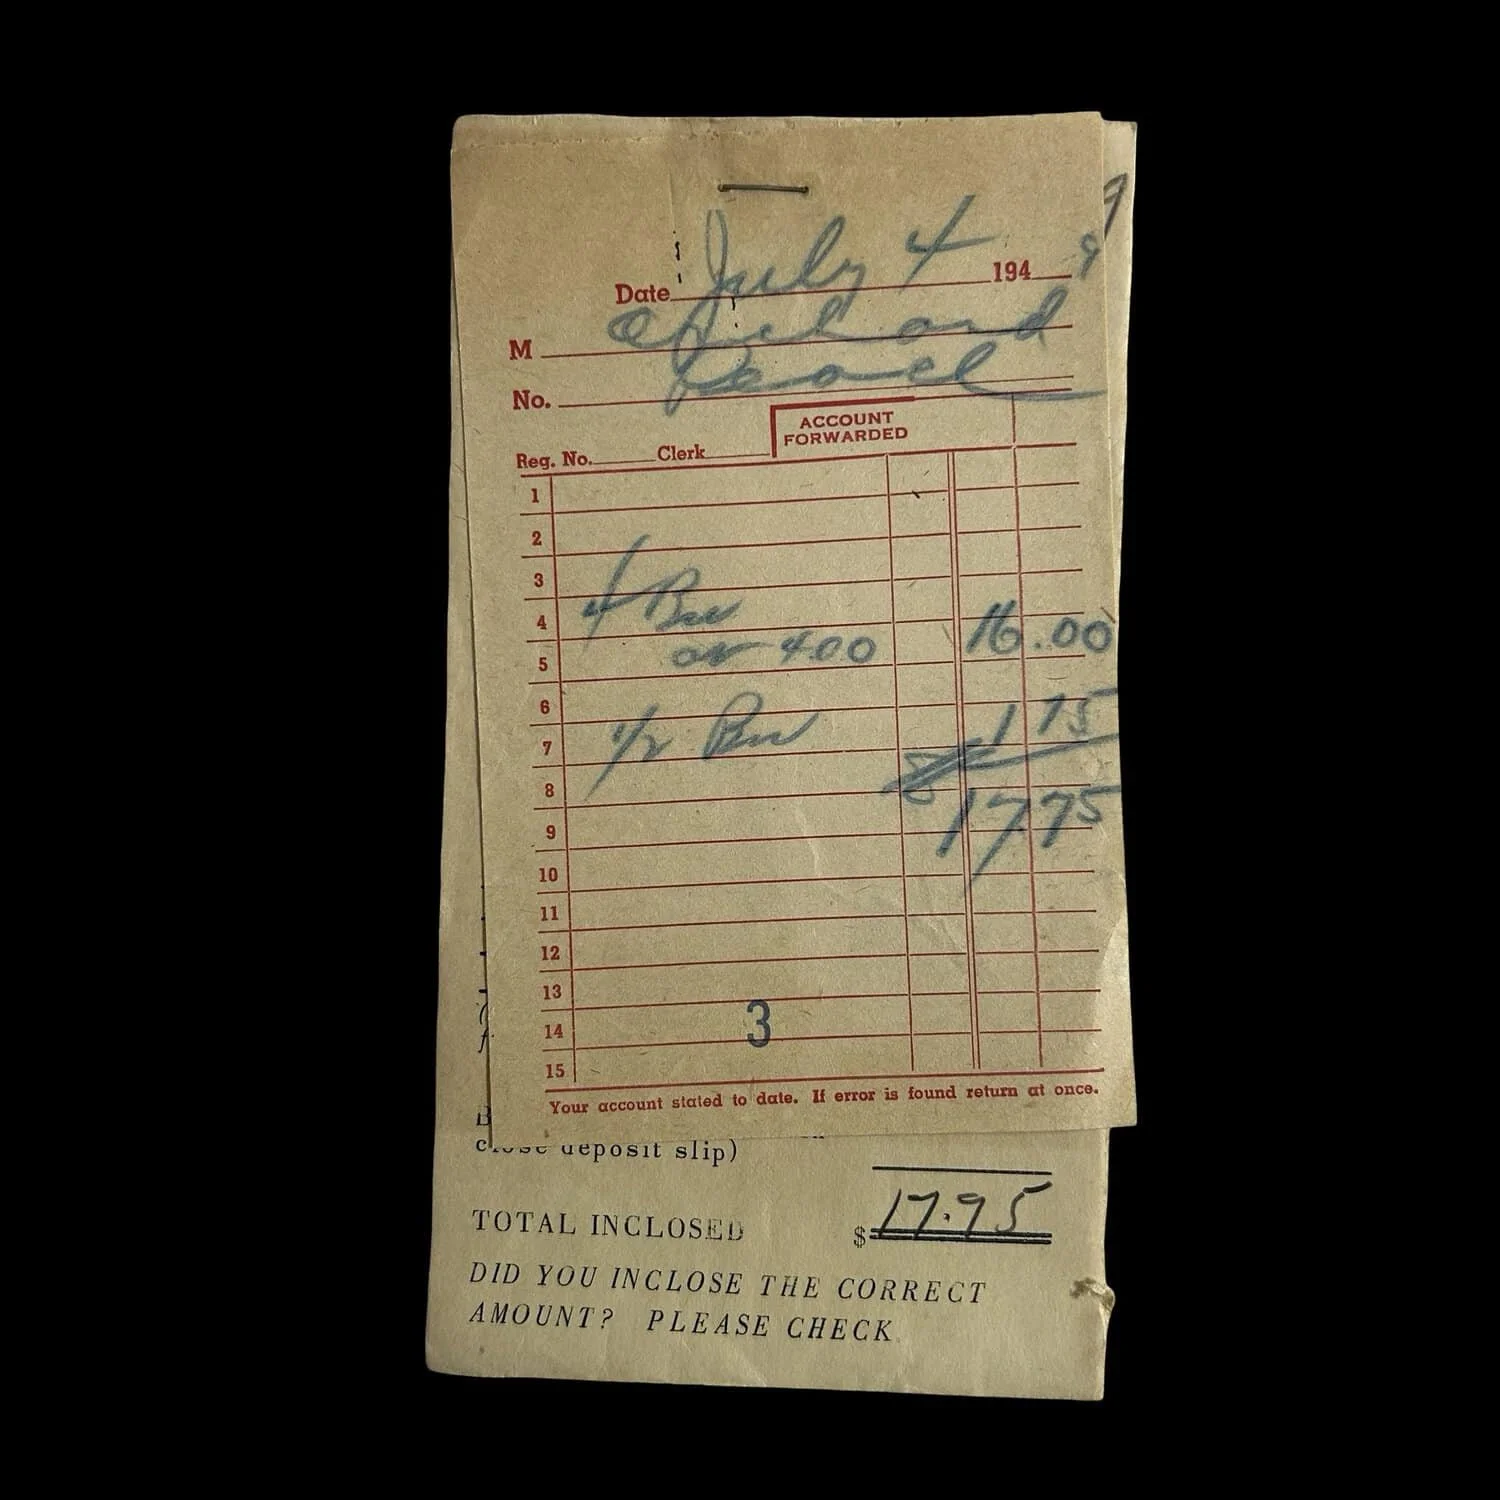 9
Date July 4 1949
M
No. Peach
ACCOUNT
FORWARDED
Reg. No. Clerk
1
2
3
4 4 Bu
5 at 4.00 16.00
6
7 1/2 Bu 1 75
8 $ 17 75
9
10
11
12
13
14 3
15
Your account stated to date. If error is found return at once.
deposit slip)
TOTAL INCLOSED $ 17.95
DID YOU INCLOSE THE CORRECT
AMOUNT? PLEASE CHECK